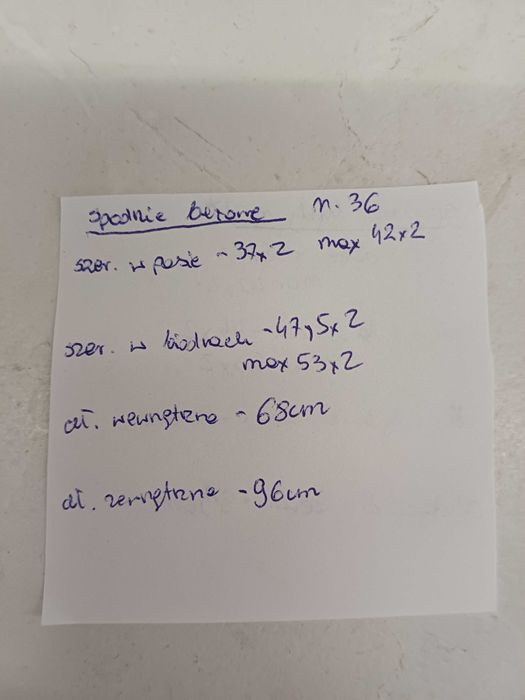 spodnie beżowe r. 36
szer. w pasie - 37x2 max 42x2
szer. w biodrach - 47,5x2
max 53x2
dł. wewnętrzna - 68cm
dł. zewnętrzna - 96cm